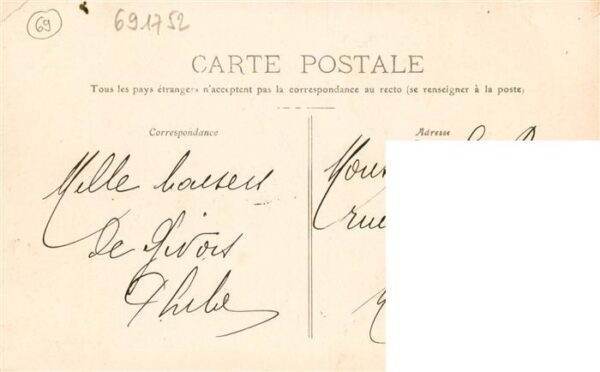 69
691752
CARTE POSTALE
Tous les pays étrangers n'acceptent pas la correspondance au recto (se renseigner à la poste)
Correspondance
Adresse
Mille baisers
de Givors
rue